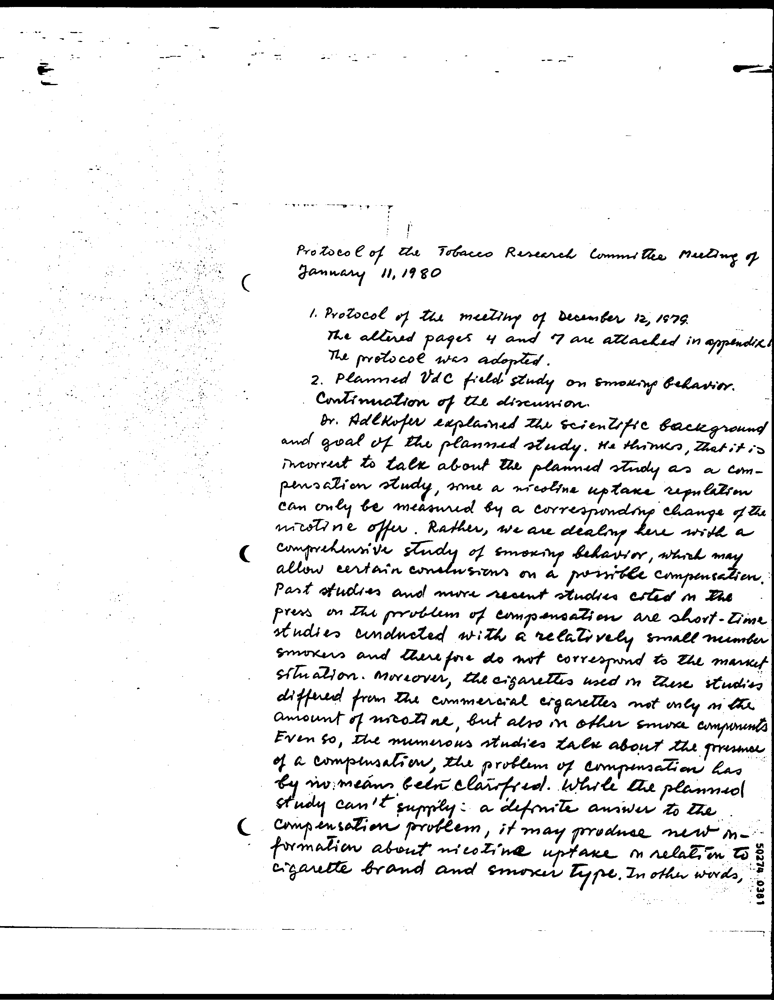 Protocol of the Tobacco Research Committee Meeting of
January 11, 1980
1. Protocol of the meeting of December 12, 1979.
The altered pages 4 and 7 are attached in appendix 1
The protocol was adopted.
2. Planned VdC field study on smoking behavior.
Continuation of the discussion.
Dr. Adlkofer explained the scientific background
and goal of the planned study. He thinks, that it is
incorrect to talk about the planned study as a com-
pensation study, since a nicotine uptake regulation
can only be measured by a corresponding change of the
nicotine offer. Rather, we are dealing here with a
comprehensive study of smoking behavior, which may
allow certain conclusions on a possible compensation.
Past studies and more recent studies cited in the
press on the problem of compensation are short-time
studies conducted with a relatively small number
smokers and therefore do not correspond to the market
situation. Moreover, the cigarettes used in these studies
differed from the commercial cigarettes not only in the
amount of nicotine, but also in other smoke components
Even so, the numerous studies talk about the presence
of a compensation, the problem of compensation has
by no means been clarified. While the planned
study can't supply a definite answer to the
compensation problem, it may produce new in-
formation about nicotine uptake in relation to
cigarette brand and smoker type. In other words,
50274 0381